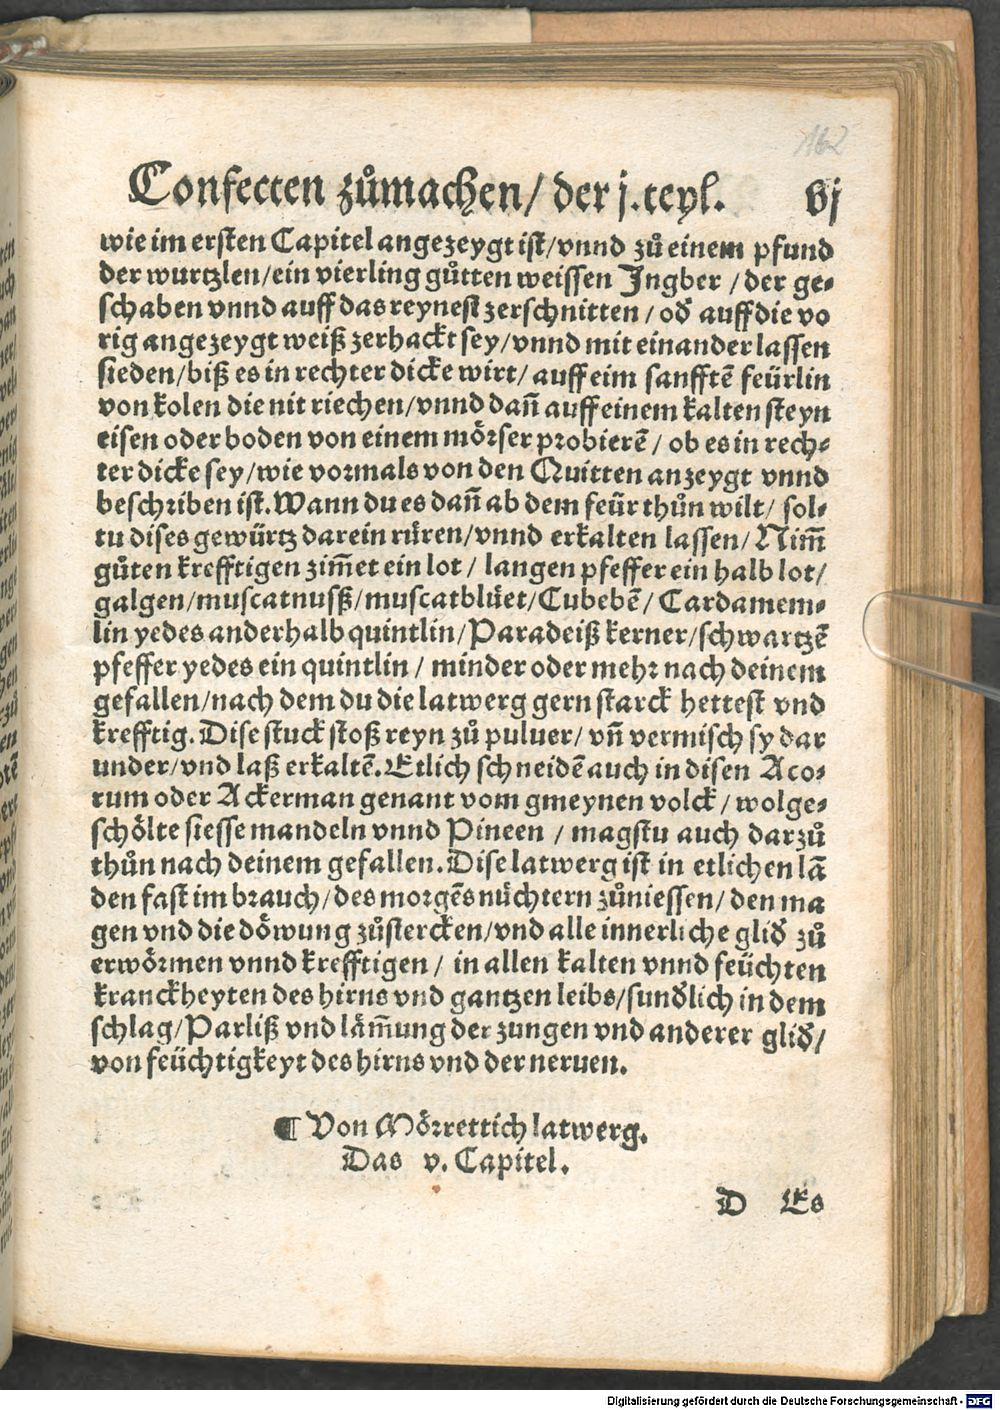 162
Confecten zůmachen/ der j. teyl. vj
wie im ersten Capitel angezeygt ist/vnnd zů einem pfund
der wurtzlen/ein vierling gůtten weissen Jngber /der ge-
schaben vnnd auff das reynest zerschnitten/ od̕ auff die vo
rig angezeygt weiß zerhackt sey/vnnd mit einander lassen
sieden/biß es in rechter dicke wirt/ auff eim sanfftē feürlin
von kolen die nit riechen/vnnd dañ auff einem kalten steyn
eisen oder boden von einem mörser probierē/ ob es in rech-
ter dicke sey/wie vormals von den Quitten anzeygt vnnd
beschriben ist. Wann du es dañ ab dem feür thůn wilt/ sol-
tu dises gewürtz darein rüren/vnnd erkalten lassen/ Nim̄
gůten krefftigen zim̄et ein lot/ langen pfeffer ein halb lot/
galgen/muscatnusß/muscatblüet/Cubebē/ Cardamem-
lin yedes anderhalb quintlin/Paradeiß kerner/schwartzē
pfeffer yedes ein quintlin/ minder oder mehr nach deinem
gefallen/nach dem du die latwerg gern starck hettest vnd
krefftig. Dise stuck stoß reyn zů puluer/ vñ vermisch sy dar
under/vnd laß erkaltē. Etlich schneidē auch in disen Aco-
rum oder Ackerman genant vom gmeynen volck/ wolge-
schölte siesse mandeln vnnd Pineen / magstu auch darzů
thůn nach deinem gefallen. Dise latwerg ist in etlichen lā
den fast im brauch/des morgēs nüchtern zůniessen/ den ma
gen vnd die döwung zůstercken/vnd alle innerliche glid̕ zů
erwörmen vnnd krefftigen/ in allen kalten vnnd feüchten
kranckheyten des hirns vnd gantzen leibs/sund̕lich in dem
schlag/Parliß vnd läm̄ung der zungen vnd anderer glid̕/
von feüchtigkeyt des hirns vnd der neruen.
¶ Von Mörrettich latwerg.
Das v. Capitel.
D Es
Digitalisierung gefördert durch die Deutsche Forschungsgemeinschaft - DFG